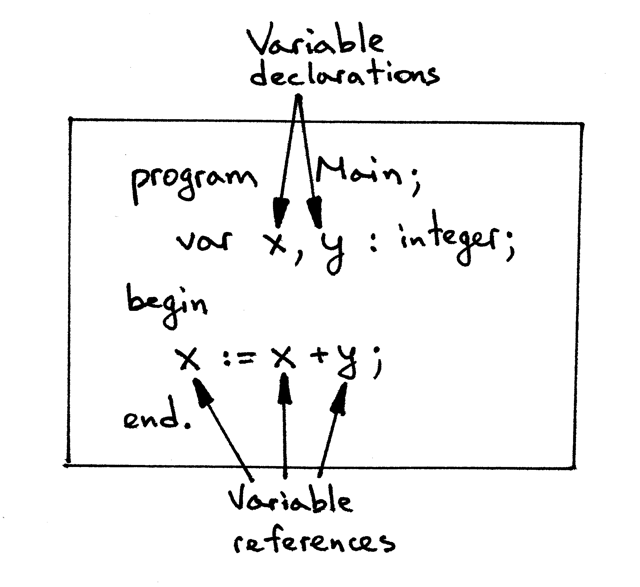 Variable
declarations
program Main;
var x, y : integer;
begin
x := x + y;
end.
Variable
references